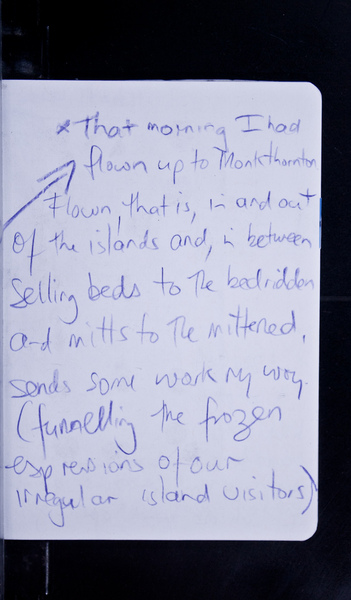 * That morning I had
flown up to Monkthornton
Flown, that is, in and out
of the islands and, in between
Selling beds to the bedridden
and mitts to the mittened,
sends some work my way.
(funnelling the frozen
expressions of our
irregular island visitors)